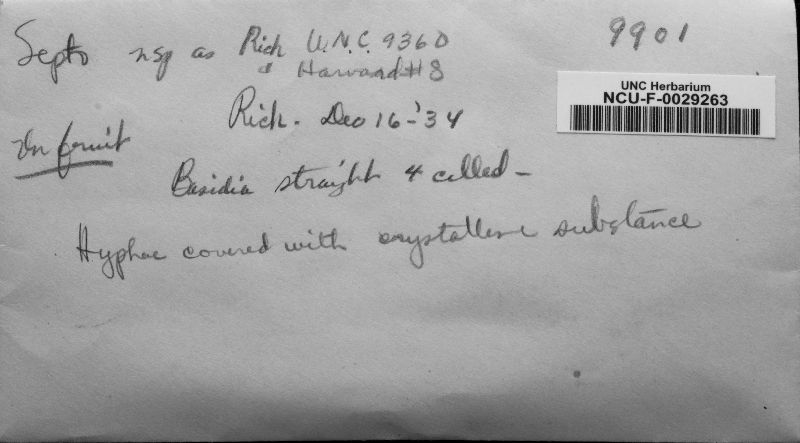 9901
Septo nsp as Rich U.N.C. 9360
& Harvard #8
UNC Herbarium
NCU-F-0029263
Rich. Dec 16-'34
In fruit
Basidia straight 4 celled -
Hyphae covered with crystalline substance